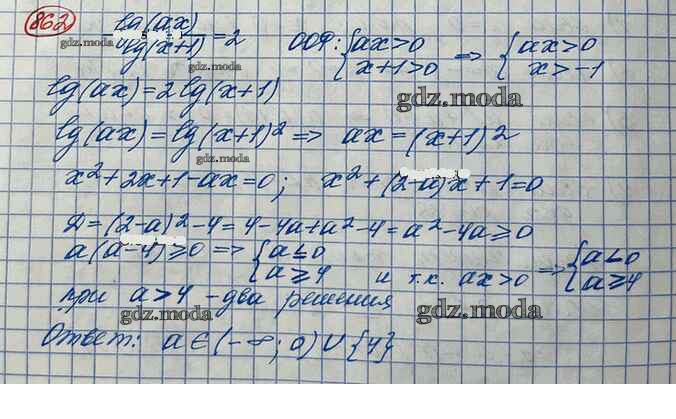 862 lg(ax)/lg(x+1) = 2 ООФ: { ax>0 x+1>0 => { ax>0 x>-1
gdz.moda
gdz.moda
lg(ax)=2lg(x+1)
gdz.moda
lg(ax)=lg(x+1)² => ax=(x+1)²
gdz.moda
x²+2x+1-ax=0; x²+(2-a)x+1=0
Д=(2-a)²-4=4-4a+a²-4=a²-4a≥0
a(a-4)≥0 => { a≤0 a≥4 и т.к. ax>0 => { a<0 a≥4
при a>4 - два решения
gdz.moda
gdz.moda
Ответ: a∈(-∞;0)∪{4}
gdz.moda